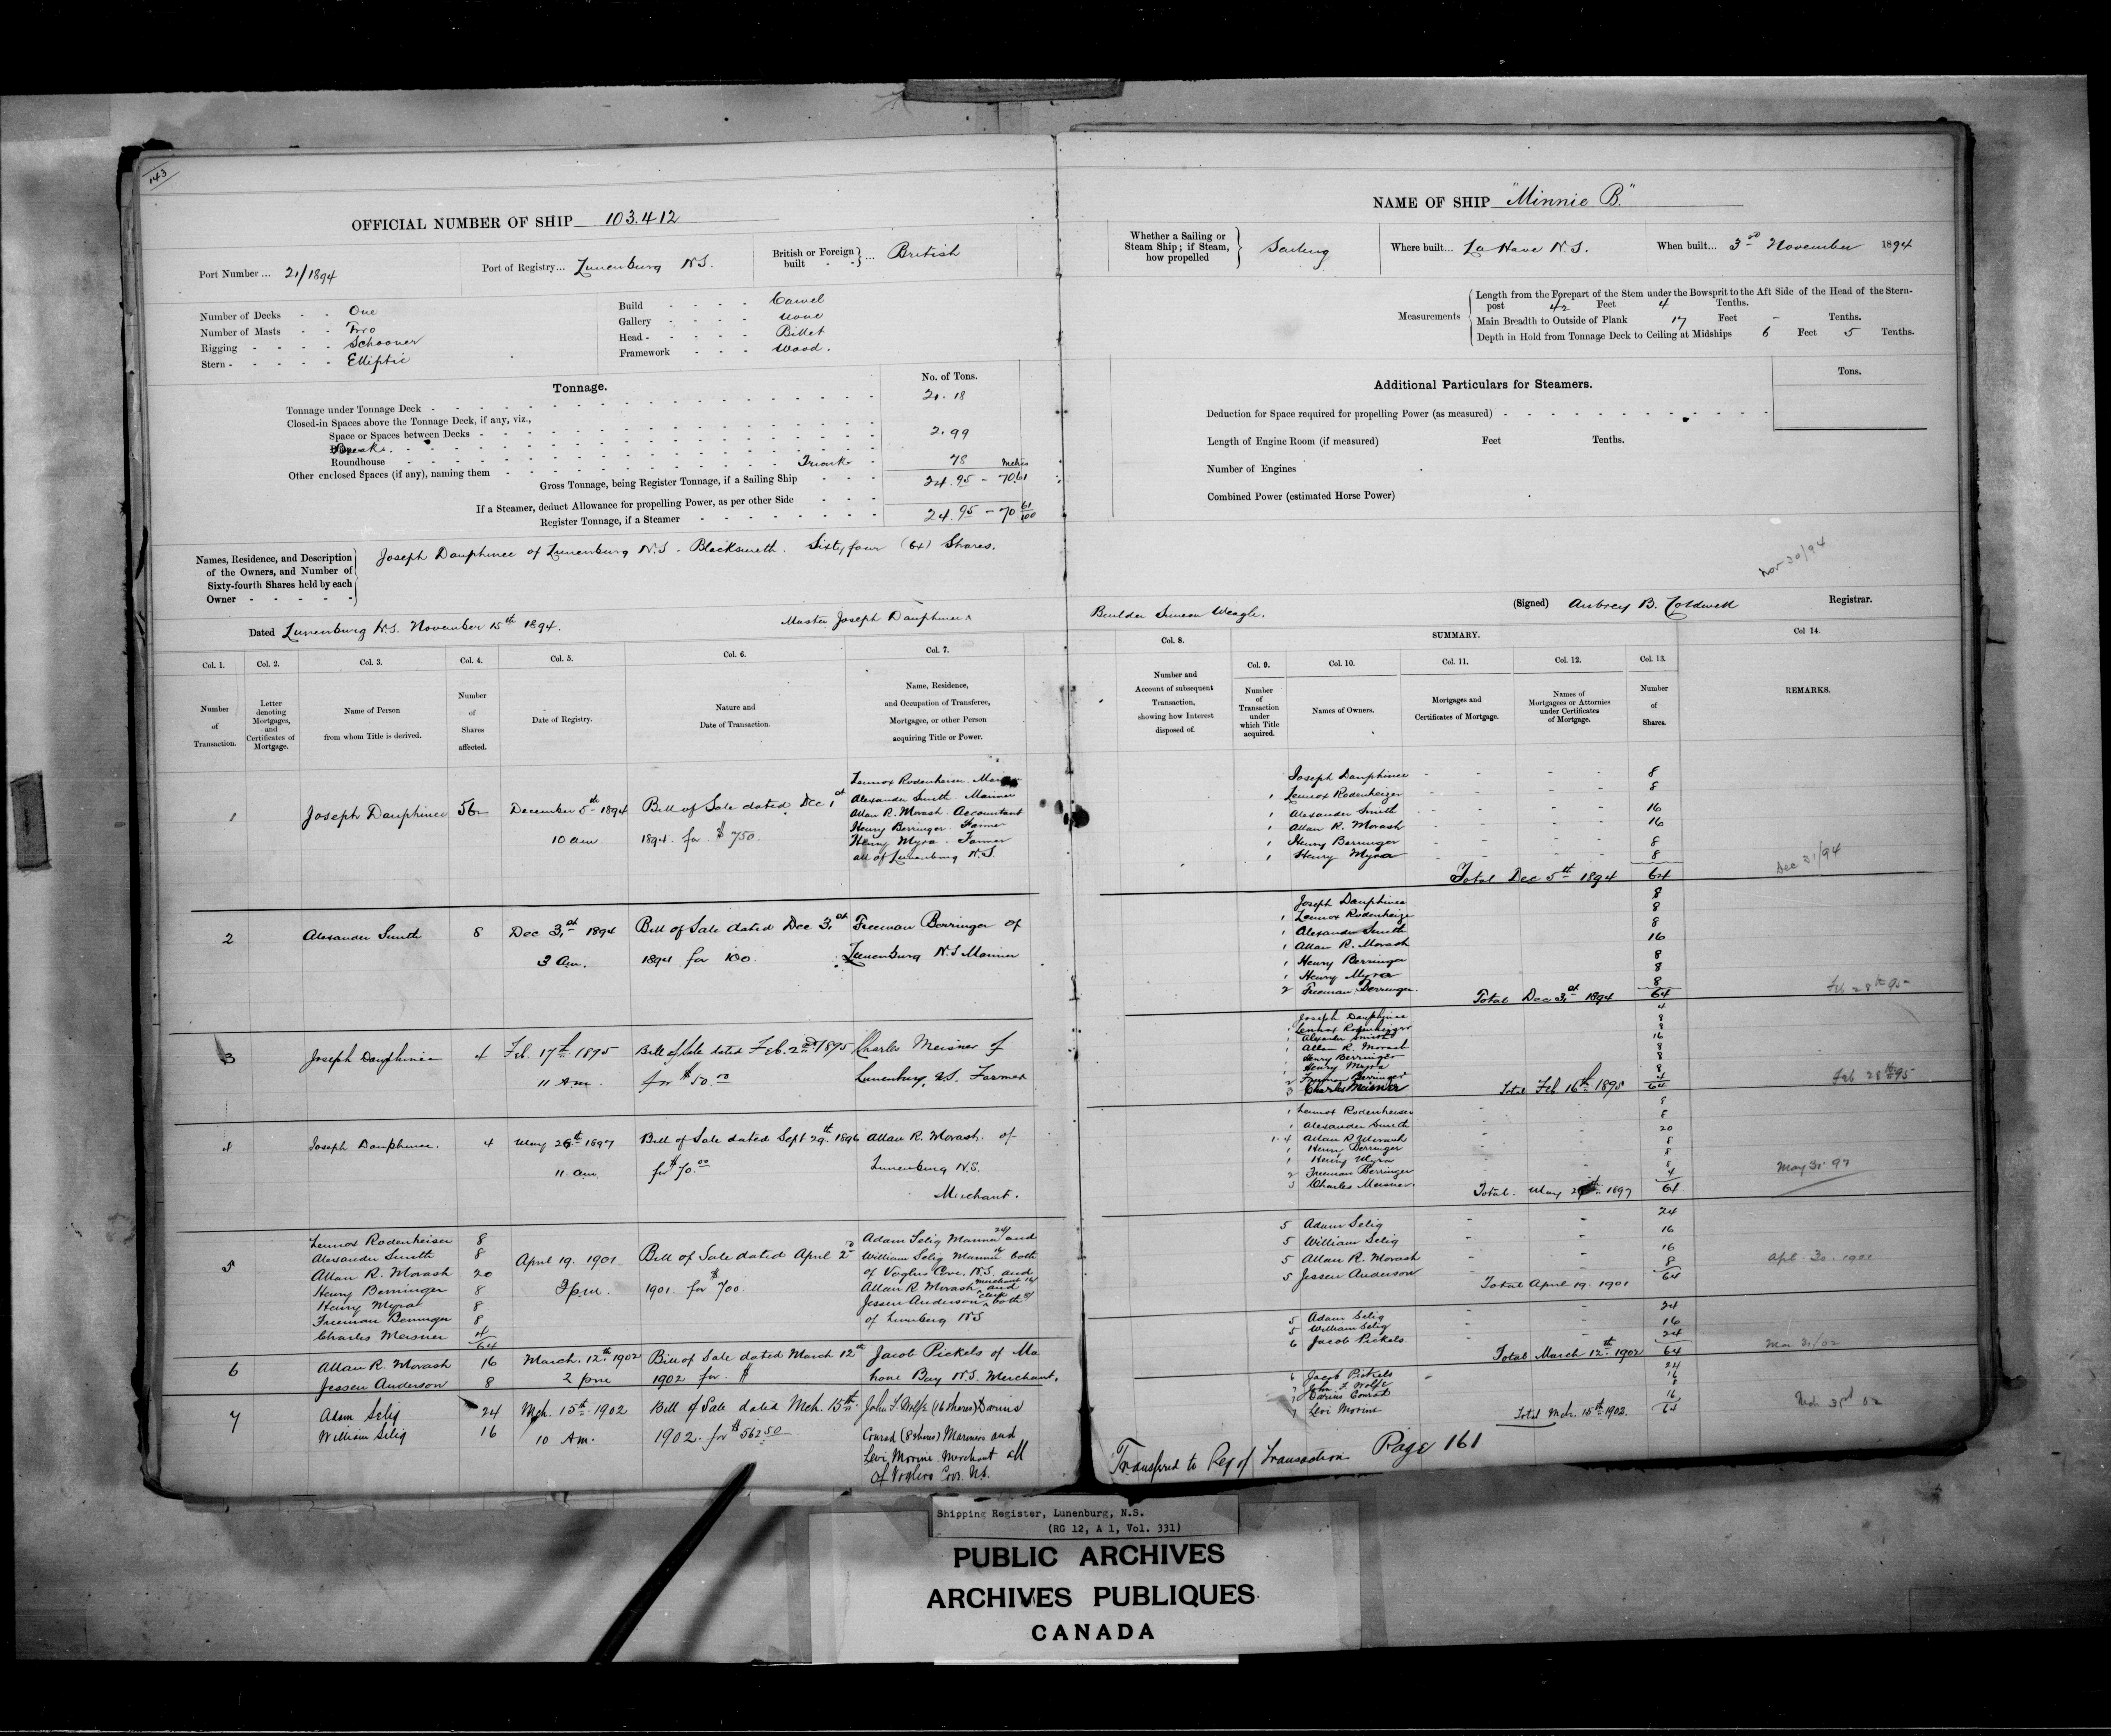 143
OFFICIAL NUMBER OF SHIP 103.412
Port Number ... 21/1894
Port of Registry... Lunenburg N.S.
British or Foreign built - - ... British
Number of Decks - - One
Number of Masts - - Two
Rigging - - - - Schooner
Stern - - - - - Elliptic
Build - - - - Carvel
Gallery - - - - None
Head - - - - - Billet
Framework - - - Wood.
Tonnage.
No. of Tons.
Tonnage under Tonnage Deck - 21.18
Closed-in Spaces above the Tonnage Deck, if any, viz.,
Space or Spaces between Decks - 2.99
Break
Roundhouse
Other enclosed Spaces (if any), naming them - Trunk - 78
Metres
Gross Tonnage, being Register Tonnage, if a Sailing Ship - - - 24.95 - 70.61
If a Steamer, deduct Allowance for propelling Power, as per other Side - - -
Register Tonnage, if a Steamer - 24.95 - 70 61/100
Names, Residence, and Description of the Owners, and Number of Sixty-fourth Shares held by each Owner - - - - -
Joseph Dauphinee of Lunenburg N.S - Blacksmith. Sixty four (64) Shares.
Dated Lunenburg N.S. November 15th 1894.
Master Joseph Dauphinee
Col. 1. Col. 2. Col. 3. Col. 4. Col. 5. Col. 6. Col. 7.
Number of Transaction.
Letter denoting Mortgages, and Certificates of Mortgage.
Name of Person from whom Title is derived.
Number of Shares affected.
Date of Registry.
Nature and Date of Transaction.
Name, Residence, and Occupation of Transferee, Mortgagee, or other Person acquiring Title or Power.
1 Joseph Dauphinee 56 December 5th 1894 Bill of Sale dated Dec 1st
10 am. 1894. for $750.
Lennox Rodenheiser.
Alexander Smith. Mariner
Allan R. Morash. Accountant
Henry Berringer. Farmer
Henry Myra. Farmer
all of Lunenburg N.S.
2 Alexander Smith 8 Dec 31st 1894 Bill of Sale dated Dec 31st Freeman Berringer of
3 Am. 1894 for 100. Lunenburg N.S Mariner
3 Joseph Dauphinee 4 Feb. 17th 1895 Bill of Sale dated Feb. 2nd 1895 Charles Meisner of
11 Am. for $50.00 Lunenburg, N.S. Farmer
4 Joseph Dauphinee. 4 May 26th 1897 Bill of Sale dated Sept 29th 1896 Allan R. Morash. of
11. am. for $70.00 Lunenburg N.S.
Merchant.
5
Lennox Rodenheiser 8
Alexander Smith 8
Allan R. Morash 20
Henry Berringer 8
Henry Myra 8
Freeman Berringer 8
Charles Meisner 4
64
April 19. 1901 Bill of Sale dated April 2nd
3 p.m. 1901. for $700.
Adam Selig Mariner 24/ and
William Selig Mariner 16 both
of Voglers Cove. N.S. and
Allan R Morash merchant 16/ and
Jessen Anderson clerk 8/ both
of Lunenburg N.S
6 Allan R. Morash 16 March. 12th 1902 Bill of Sale dated March 12th Jacob Pickels of Ma
Jessen Anderson 8 2 pm 1902 for $ hone Bay N.S. Merchant.
7 Adam Selig 24 Mch. 15th 1902 Bill of Sale dated Mch. 15th John F. Wolfe (16 shares) Darius
William Selig 16 10 Am. 1902. for $562.50 Conrad (8 shares) Mariners and
Levi Morine Merchant all
of Voglers Cove N.S.
NAME OF SHIP "Minnie B."
Whether a Sailing or Steam Ship; if Steam, how propelled
Sailing
Where built... La Have N.S.
When built... 3rd November 1894
Measurements
Length from the Forepart of the Stem under the Bowsprit to the Aft Side of the Head of the Stern-
post 42 Feet 4 Tenths.
Main Breadth to Outside of Plank 17 Feet - Tenths.
Depth in Hold from Tonnage Deck to Ceiling at Midships 6 Feet 5 Tenths.
Additional Particulars for Steamers.
Tons.
Deduction for Space required for propelling Power (as measured) -
Length of Engine Room (if measured) Feet Tenths.
Number of Engines
Combined Power (estimated Horse Power)
Nov 30/94
Builder Simeon Weagle.
(Signed) Aubrey B. Coldwell Registrar.
Col. 8. SUMMARY. Col 14.
Col. 9. Col. 10. Col. 11. Col. 12. Col. 13.
Number and Account of subsequent Transaction, showing how Interest disposed of.
Number of Transaction under which Title acquired.
Names of Owners.
Mortgages and Certificates of Mortgage.
Names of Mortgagees or Attornies under Certificates of Mortgage.
Number of Shares.
REMARKS.
Joseph Dauphinee 8
1 Lennox Rodenheizer 8
1 Alexander Smith 16
1 Allan R. Morash 16
1 Henry Berringer 8
1 Henry Myra 8
Total Dec 5th 1894 64
Dec 31/94
Joseph Dauphinee 8
1 Lennox Rodenheizer 8
1 Alexander Smith 8
1 Allan R. Morash 16
1 Henry Berringer 8
1 Henry Myra 8
2 Freeman Berringer. 8
Total Dec 31st 1894 64
Feb 28th 95
Joseph Dauphinee 4
1 Lennox Rodenheizer 8
1 Alexander Smith 8
1 Allan R. Morash 16
1 Henry Berringer 8
1 Henry Myra 8
2 Freeman Berringer 8
3 Charles Meisner 4
Total Feb 16th 1895 64
Feb 28th 95
1 Lennox Rodenheiser 8
1 Alexander Smith 8
1.4 Allan R Morash 20
1 Henry Berringer 8
1 Henry Myra 8
2 Freeman Berringer 8
3 Charles Meisner. 4
Total. May 26th 1897 64
May 31. 97
5 Adam Selig 24
5 William Selig 16
5 Allan R. Morash 16
5 Jessen Anderson 8
Total April 19. 1901 64
Apl. 30. 1901
5 Adam Selig 24
5 William Selig 16
6 Jacob Pickels 24
Total March 12th 1902 64
Mar 31/02
6 Jacob Pickels 24
7 John. F. Wolfe 16
7 Darius Conrad 8
7 Levi Morine 16
Total Mch. 15th 1902. 64
Transferred to Reg of Transaction Page 161
Shipping Register, Lunenburg, N.S.
(RG 12, A 1, Vol. 331)
PUBLIC ARCHIVES
ARCHIVES PUBLIQUES
CANADA